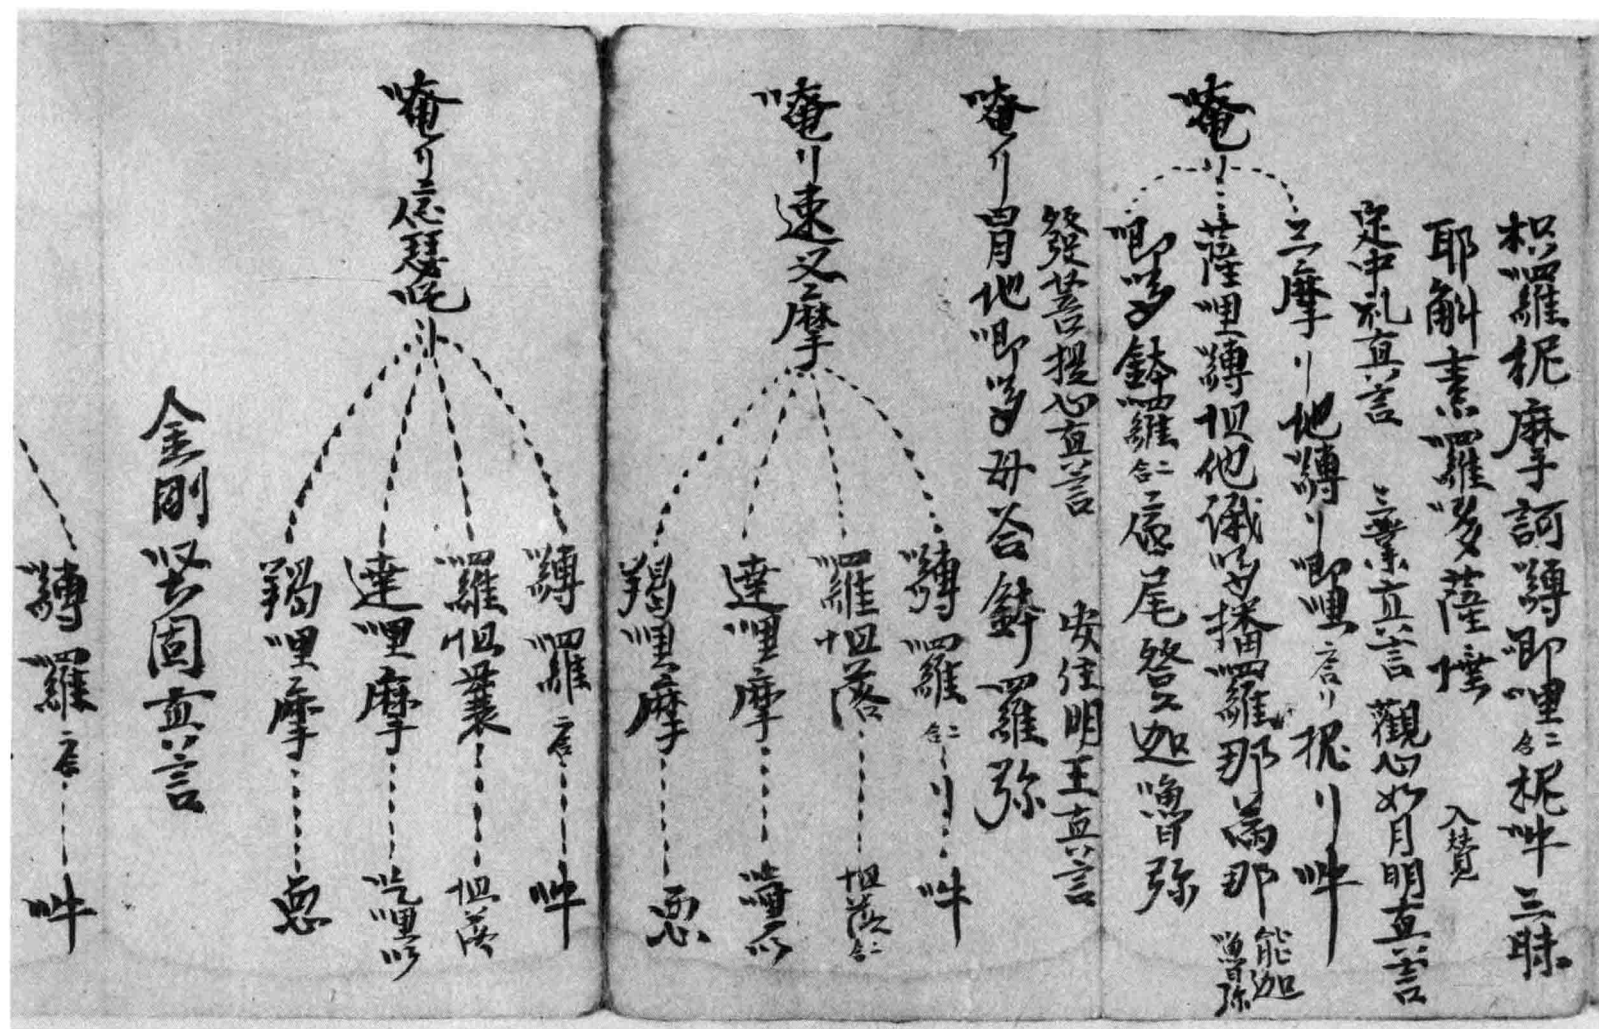 枳羅柅摩訶嚩唧哩二合柅吽三昧
耶斛素羅哆薩怛 入賛
定中礼真言 三業真言 觀心如月明真言
唵
三摩地嚩唧哩二合吽
薩哩嚩怛他誐哆播羅那萬那 能迦嚕弥
唧哆鉢羅二合底尾登迦嚕弥
發菩提心真言 安住明王真言
唵冒地唧哆母荅鉢羅弥
唵速叉摩
嚩羅二合 吽
羅怛落 怛落二合
達哩摩
羯哩摩 惡
唵底瑟吒
嚩羅二合 吽
羅怛曩 怛落
達哩摩 吃哩以
羯哩摩 惡
金剛堅固真言
嚩羅二合 吽